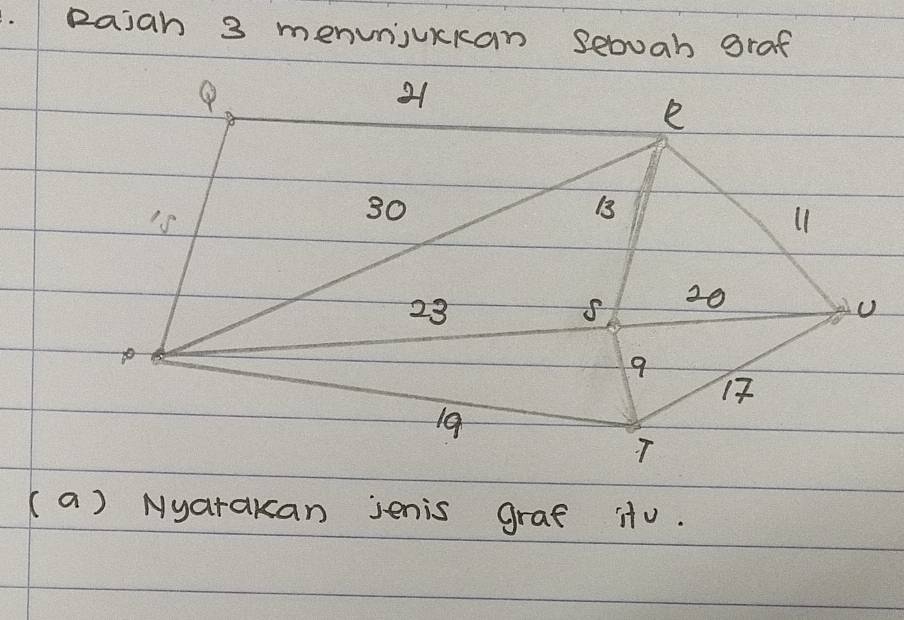 Rajah 3 menunjukkan sebuah graf
Q 21 R
15 30 13 11
23 S 20 U
P 9 17
19
T
(a) Nyatakan jenis graf itu.